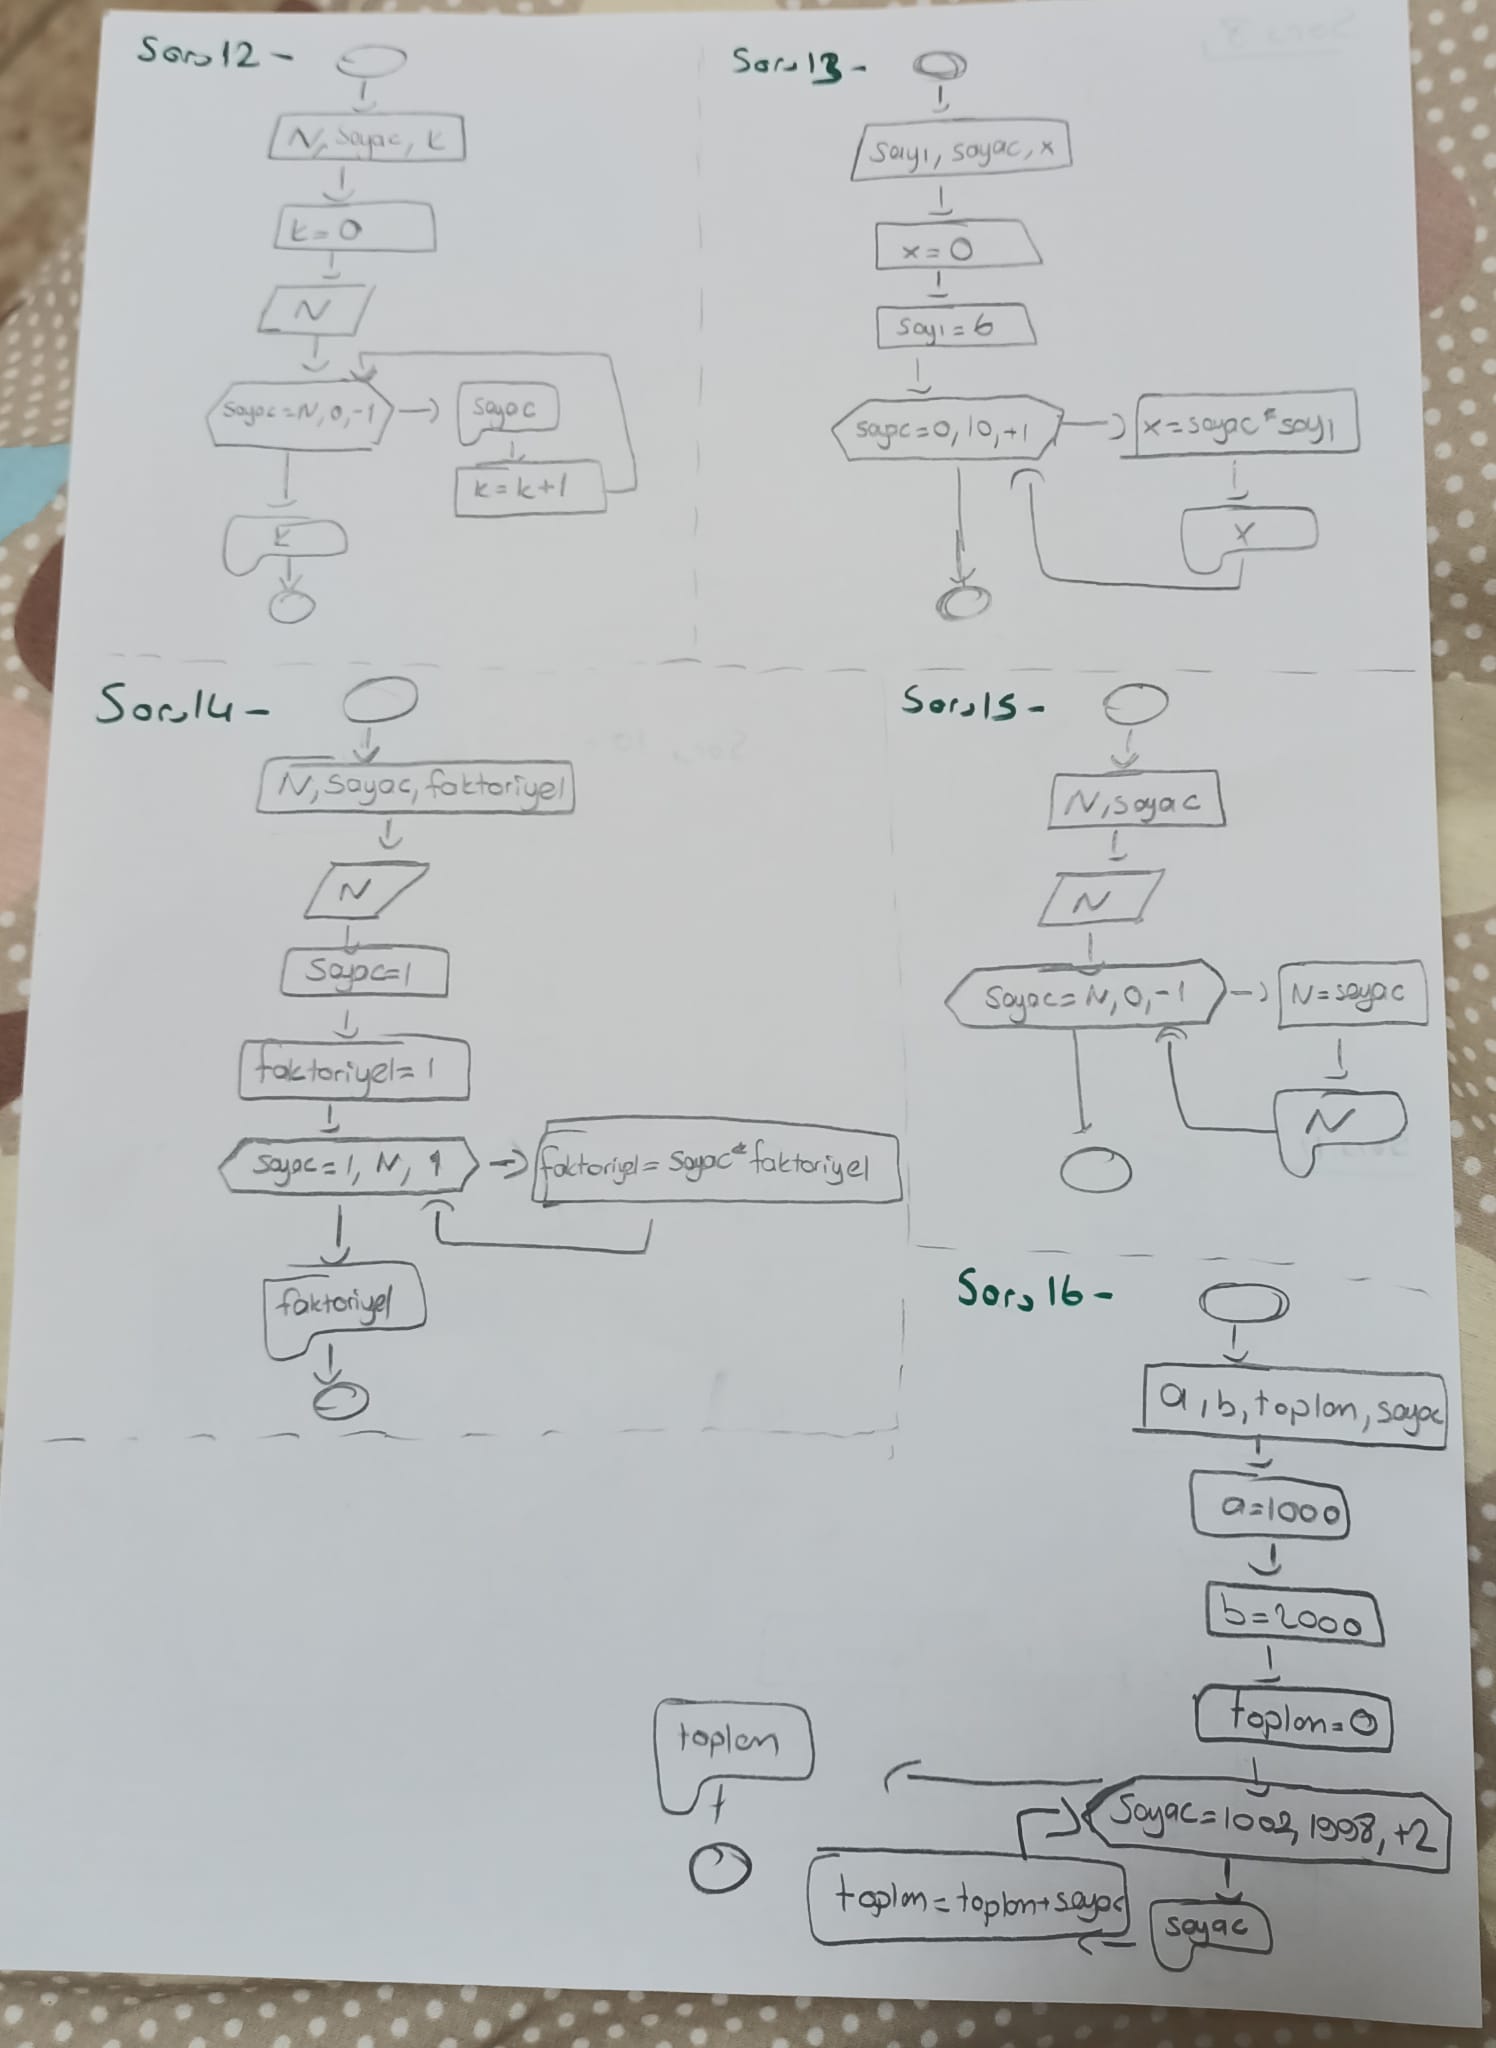 Soru 12 -
N, sayac, k
k = 0
N
sayac = N, 0, -1
sayac
k = k+1
k
Soru 13 -
sayı, sayac, x
x = 0
sayı = 6
sayac = 0, 10, +1
x = sayac * sayı
x
Soru 14 -
N, sayac, faktoriyel
N
Sayac=1
faktoriyel= 1
sayac = 1, N, 1
faktoriyel = sayac * faktoriyel
faktoriyel
Soru 15 -
N, sayac
N
Sayac = N, 0, -1
N = sayac
N
Soru 16 -
a, b, toplam, sayac
a=1000
b=2000
toplam = 0
Sayac = 1002, 1998, +2
sayac
toplam = toplam + sayac
toplam